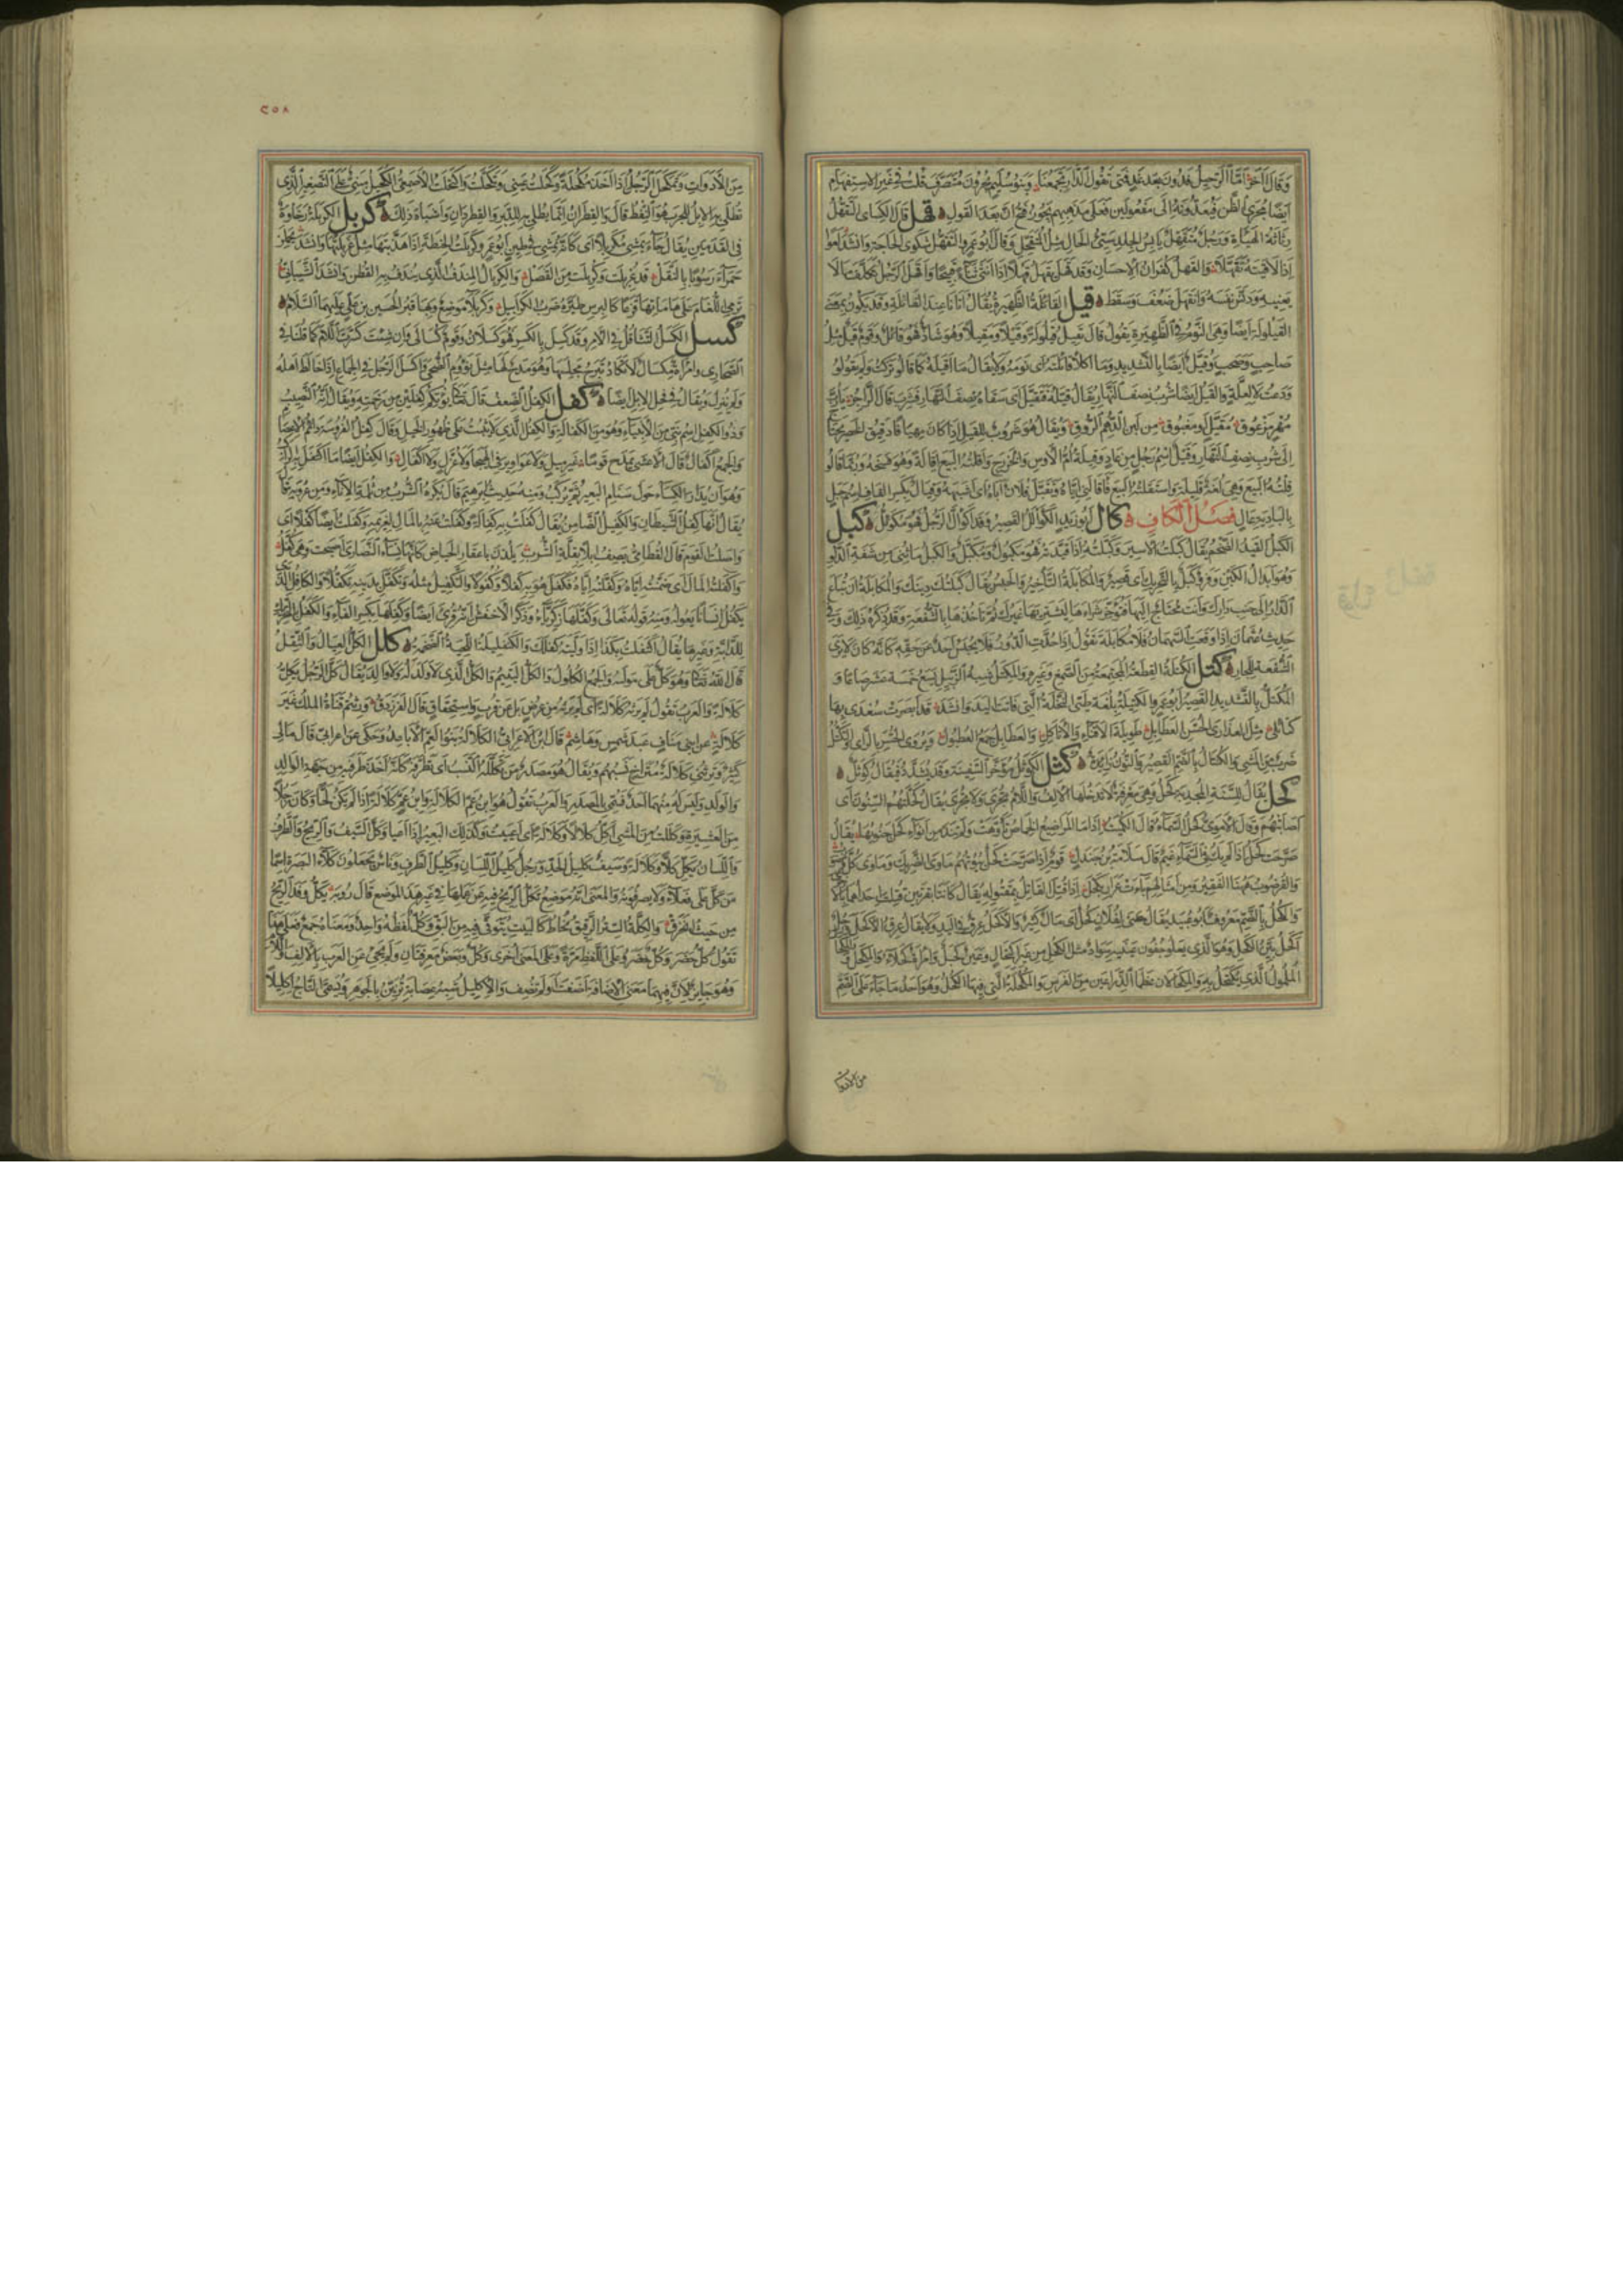 وَقَالَ آخَرُ أَمَّا الرَّحِيلُ فَدُونَ بَعْدَ غَدٍ فَمَتَى تَقُولُ الدَّارَ تَجْمَعُنَا وَبَنُو سُلَيْمٍ يُجْرُونَ مُتَصَرِّفَ قُلْتُ فِي غَيْرِ الاسْتِفْهَامِ
أَيْضًا مُجْرَى الظَّنِّ فَيُعَدُّونَهُ إِلَى مَفْعُولَيْنِ فَعَلَى مَذْهَبِهِمْ يَجُوزُ فَتْحُ أَنَّ بَعْدَ الْقَوْلِ قهل قَالَ الكِسَائِيُّ التَّقَهُّلُ
رَثَاثَةُ الْهَيْئَةِ وَرَجُلٌ مُتَقَهِّلٌ يَابِسُ الْجِلْدِ سَيِّئُ الْحَالِ مِثْلُ الْمُتَقَحِّلِ وَقَالَ أَبُو عَمْرٍو التَّقَهُّلُ شَكْوَى الْحَاجَةِ وَأَنْشَدَ
إِذَا لَاقَيْتَهُ تَقَهَّلَا وَالقَهْلُ كُفْرَانُ الْإِحْسَانِ وَقَدْ قَهَلَ يَقْهَلُ قَهْلًا إِذَا أَثْنَى ثَنَاءً قَبِيحًا وَأَقْهَلَ الرَّجُلُ تَكَلَّفَ مَا لَا
يَعْنِيهِ وَدَنَّسَ نَفْسَهُ وَانْقَهَلَ ضَعُفَ وَسَقَطَ قيل القَائِلَةُ الظَّهِيرَةُ يُقَالُ أَتَانَا عِنْدَ القَائِلَةِ وَقَدْ يَكُونُ بِمَعْنَى
القَيْلُولَةِ أَيْضًا وَهِيَ النَّوْمُ فِي الظَّهِيرَةِ يَقُولُ قَالَ يَقِيلُ قَيْلُولَةً وَقَيْلًا وَمَقِيلًا وَهُوَ شَاذٌّ فَهُوَ قَائِلٌ وَقَوْمٌ قَيْلٌ مِثْلُ
صَاحِبٍ وَصَحْبٍ وَقُيَّلٌ أَيْضًا بِالتَّشْدِيدِ وَمَا أَكْلَأَ قَائِلَتَهُ أَيْ نَوْمَهُ وَلَا يُقَالُ مَا أَقْيَلَهُ كَمَا قَالُوا تَرَكْتُ وَلَمْ يَقُولُوا
وَدَعْتُ لَا لِعِلَّةٍ وَالقَيْلُ أَيْضًا شُرْبُ نِصْفِ النَّهَارِ يُقَالُ قَيَّلَهُ فَتَقَيَّلَ أَيْ سَقَاهُ نِصْفَ النَّهَارِ فَشَرِبَ قَالَ الرَّاجِزُ
إِلَى شُرْبِ نِصْفِ النَّهَارِ وَقَيْلٌ اسْمُ رَجُلٍ مِنْ عَادٍ وَقَيْلَةُ أُمُّ الْأَوْسِ وَالْخَزْرَجِ وَأَقَلْتُهُ الْبَيْعَ إِقَالَةً وَهُوَ فَسْخُهُ وَرُبَّمَا قَالُوا
قِلْتُهُ الْبَيْعَ وَهِيَ لُغَةٌ قَلِيلَةٌ وَاسْتَقَلْتُهُ الْبَيْعَ فَأَقَالَنِي إِيَّاهُ وَتَقَيَّلَ فُلَانٌ أَبَاهُ أَيْ أَشْبَهَهُ وَقِيَالٌ بِكَسْرِ القَافِ اسْمُ جَبَلٍ
بِالْبَادِيَةِ عَالٍ فَصْلُ الْكَافِ كأل أَبُو زَيْدٍ الكَوَأْلَلُ القَصِيرُ وَقَدِ اكْوَأَلَّ الرَّجُلُ فَهُوَ مُكْوَئِلٌّ كبل
الكَبْلُ القَيْدُ الضَّخْمُ يُقَالُ كَبَلْتُ الْأَسِيرَ وَكَبَّلْتُهُ إِذَا قَيَّدْتَهُ فَهُوَ مَكْبُولٌ وَمُكَبَّلٌ وَالكَبْلُ مَا ثُنِيَ مِنْ شَفَةِ الدَّلْوِ
وَهُوَ إِبْدَالُ الكَبْنِ وَفَرْوٌ كَبَلٌ بِالتَّحْرِيكِ أَيْ قَصِيرٌ وَالمُكَابَلَةُ التَّأْخِيرُ وَالحَبْسُ يُقَالُ كَبَلْتُكَ دَيْنَكَ وَالمُكَابَلَةُ أَنْ تُبَاعَ
الدَّارُ إِلَى جَنْبِ دَارِكَ وَأَنْتَ مُحْتَاجٌ إِلَيْهَا فَتُؤَخِّرَ شِرَاءَهَا لِيَشْتَرِيَهَا غَيْرُكَ ثُمَّ تَأْخُذَهَا بِالشُّفْعَةِ وَقَدْ كُرِهَ ذَلِكَ وَفِي
حَدِيثِ عُثْمَانَ إِذَا وَقَعَتِ السُّهْمَانُ فَلَا مُكَابَلَةَ تَقُولُ إِذَا حُدَّتِ الْحُدُودُ فَلَا يُحْبَسُ أَحَدٌ عَنْ حَقِّهِ كَأَنَّهُ كَانَ لَا يَرَى
الشُّفْعَةَ لِلْجَارِ كتل الكُتْلَةُ القِطْعَةُ المُجْتَمِعَةُ مِنَ الصَّمْغِ وَغَيْرِهِ وَالمِكْتَلُ شِبْهُ الزَّبِيلِ يَسَعُ خَمْسَةَ عَشَرَ صَاعًا وَ
المُكَتَّلُ بِالتَّشْدِيدِ القَصِيرُ أَبُو عَمْرٍو الكَتِيلَةُ بِلُغَةِ طَيِّئٍ النَّخْلَةُ الَّتِي فَاتَتِ الْيَدَ وَأَنْشَدَ قَدْ أَبْصَرَتْ سُعْدَى بِهَا
كَتَائِلِي مِثْلَ العَذَارَى الحُسَّنِ العَطَابِلِ طَوِيلَةَ الْأَقْنَاءِ وَالْأَثَاكِلِ وَالعَطَابِلُ جَمْعُ العُطْبُولِ
ضَرْبٌ مِنَ المَشْيِ وَالكُنْتَأْلُ بِالضَّمِّ القَصِيرُ وَالنُّونُ زَائِدَةٌ كثل الكَوْثَلُ مُؤَخَّرُ السَّفِينَةِ وَقَدْ يُشَدَّدُ فَيُقَالُ كَوْثَلٌّ
كحل يُقَالُ لِلسَّنَةِ المُجْدِبَةِ كَحْلُ وَهِيَ مَعْرِفَةٌ لَا تَدْخُلُهَا الْأَلِفُ وَاللَّامُ تُجْرَى وَلَا تُجْرَى يُقَالُ كَحَلَتْهُمُ السِّنُونَ أَيْ
أَصَابَتْهُمْ وَقَالَ الْأُمَوِيُّ كَحْلُ السَّمَاءُ قَالَ الكُمَيْتُ
صَرَّحَتْ كَحْلُ إِذَا لَمْ يَكُنْ فِي السَّمَاءِ غَيْمٌ قَالَ سَلَامَةُ بْنُ جَنْدَلٍ قَوْمٌ إِذَا صَرَّحَتْ كَحْلٌ بُيُوتُهُمُ مَأْوَى الضَّرِيكِ وَمَأْوَى كُلِّ
وَالقُرْضُوبُ هٰهُنَا الفَقِيرُ وَمِنْ أَمْثَالِهِمْ بَاءَتْ عَرَارِ بِكَحْلَ إِذَا قُتِلَ القَاتِلُ بِمَقْتُولِهِ يُقَالُ كَانَتَا بَقَرَتَيْنِ
وَالكُحْلُ بِالضَّمِّ مَعْرُوفٌ أَبُو عُبَيْدٍ يُقَالُ مَضَى لِفُلَانٍ كُحْلٌ أَيْ مَالٌ كَثِيرٌ وَالْأَكْحَلُ عِرْقٌ فِي الْيَدِ وَلَا يُقَالُ عِرْقُ الْأَكْحَلِ وَرَجُلٌ
أَكْحَلُ بَيِّنُ الكَحَلِ وَهُوَ الَّذِي يَعْلُو جُفُونَ عَيْنَيْهِ سَوَادٌ مِثْلُ الكُحْلِ مِنْ غَيْرِ اكْتِحَالٍ وَعَيْنٌ كَحِيلٌ وَامْرَأَةٌ كَحْلَاءُ وَالمِكْحَلُ
المُلْمُولُ الَّذِي يُكْتَحَلُ بِهِ وَالمِكْحَالَانِ عَظْمَا الذِّرَاعَيْنِ مِنَ الفَرَسِ وَالمُكْحُلَةُ الَّتِي فِيهَا الكُحْلُ وَهُوَ أَحَدُ مَا جَاءَ عَلَى الضَّمِّ
من الادوات
٢٥٨
مِنَ الْأَدَوَاتِ وَتَمَكْحَلَ الرَّجُلُ إِذَا أَخَذَ مُكْحُلَةً وَكَحَلْتُ عَيْنِي وَتَكَحَّلْتُ وَاكْتَحَلْتُ الْأَصْمَعِيُّ الكُحَيْلُ مَبْنِيٌّ عَلَى التَّصْغِيرِ الَّذِي
تُطْلَى بِهِ الْإِبِلُ لِلْجَرَبِ هُوَ النِّفْطُ قَالَ وَالقَطِرَانُ إِنَّمَا يُطْلَى بِهِ لِلدَّبَرِ وَالقِرْدَانِ وَأَشْبَاهِ ذَلِكَ كربل الكَرْبَلَةُ رَخَاوَةٌ
فِي القَدَمَيْنِ يُقَالُ جَاءَ يَمْشِي مُكَرْبِلًا أَيْ كَأَنَّهُ يَمْشِي فِي طِينٍ أَبُو عَمْرٍو كَرْبَلْتُ الحِنْطَةَ إِذَا هَذَّبْتَهَا مِثْلُ غَرْبَلْتُهَا وَأَنْشَدَ
حَمْرَاءَ رَسُوبًا بِالنَّقَلِ قَدْ غُرْبِلَتْ وَكُرْبِلَتْ مِنَ القَصَلِ وَالكِرْبَالُ المِنْدَفُ الَّذِي يُنْدَفُ بِهِ القُطْنُ وَأَنْشَدَ الشَّيْبَانِيُّ
تَرْمِي اللُّغَامَ عَلَى هَامَاتِهَا قَزَعًا كَالبِرْسِ طَيَّرَهُ ضَرْبُ الكَرَابِيلِ وَكَرْبَلَاءُ مَوْضِعٌ وَبِهَا قَبْرُ الحُسَيْنِ بْنِ عَلِيٍّ عَلَيْهِمَا السَّلَامُ
كسل الكَسَلُ التَّثَاقُلُ فِي الْأَمْرِ وَقَدْ كَسِلَ بِالكَسْرِ فَهُوَ كَسْلَانُ وَقَوْمٌ كُسَالَى وَإِنْ شِئْتَ كَسَرْتَ اللَّامَ كَمَا قُلْنَا فِي
الصَّحَارِي وَامْرَأَةٌ مِكْسَالٌ لَا تَكَادُ تَبْرَحُ مَجْلِسَهَا وَهُوَ مَدْحٌ لَهَا مِثْلُ نَؤُومِ الضُّحَى وَأَكْسَلَ الرَّجُلُ فِي الجِمَاعِ إِذَا خَالَطَ أَهْلَهُ
وَلَمْ يُنْزِلْ وَيُقَالُ فِي فَحْلِ الْإِبِلِ أَيْضًا كفل الكِفْلُ الضِّعْفُ قَالَ تَعَالَى يُؤْتِكُمْ كِفْلَيْنِ مِنْ رَحْمَتِهِ وَيُقَالُ إِنَّهُ النَّصِيبُ
وَذُو الكِفْلِ اسْمُ نَبِيٍّ مِنَ الْأَنْبِيَاءِ وَهُوَ مِنَ الكَفَالَةِ وَالكِفْلُ الَّذِي لَا يَثْبُتُ عَلَى ظُهُورِ الخَيْلِ
وَالجَمْعُ أَكْفَالٌ قَالَ الْأَعْشَى يَمْدَحُ قَوْمًا غَيْرُ مِيلٍ وَلَا عَوَاوِيرَ فِي الهَيْجَا وَلَا عُزَّلٍ وَلَا أَكْفَالِ وَالكِفْلُ أَيْضًا مَا اكْتَفَلَ بِهِ الرَّاكِبُ
وَهُوَ أَنْ يُدَارَ الكِسَاءُ حَوْلَ سَنَامِ البَعِيرِ ثُمَّ يُرْكَبَ وَمِنْهُ حَدِيثُ إِبْرَهِيمَ قَالَ يُكْرَهُ الشُّرْبُ مِنْ ثُلْمَةِ الْإِنَاءِ وَمِنْ عُرْوَتِهِ
يُقَالُ إِنَّهَا كِفْلُ الشَّيْطَانِ وَالكَفِيلُ الضَّامِنُ يُقَالُ كَفَلْتُ بِهِ كَفَالَةً وَكَفَلْتُ عَنْهُ بِالمَالِ لِغَرِيمِهِ وَكَفَلْتُ أَيْضًا كَفْلًا أَيْ
وَاصَلْتُ الصَّوْمَ قَالَ القُطَامِيُّ يَصِفُ إِبِلًا بِقِلَّةِ الشُّرْبِ يَلُذْنَ بِأَعْقَارِ الحِيَاضِ كَأَنَّهَا نِسَاءُ النَّصَارَى أَصْبَحَتْ وَهِيَ كُفَّلُ
وَأَكْفَلْتُهُ المَالَ أَيْ ضَمَّنْتُهُ إِيَّاهُ وَكَفَلْتُهُ إِيَّاهُ فَكَفَلَ هُوَ بِهِ كَفْلًا وَكُفُولًا وَالتَّكْفِيلُ مِثْلُهُ وَتَكَفَّلَ بِدَيْنِهِ تَكَفُّلًا وَالكَافِلُ الَّذِي
يَكْفُلُ إِنْسَانًا يَعُولُهُ وَمِنْهُ قَوْلُهُ تَعَالَى وَكَفَّلَهَا زَكَرِيَّاءُ وَذَكَرَ الْأَخْفَشُ أَنَّهُ قُرِئَ أَيْضًا وَكَفِلَهَا بِكَسْرِ الفَاءِ وَالكَفَلُ بِالتَّحْرِيكِ
لِلدَّابَّةِ وَغَيْرِهَا كلل الكَلُّ العِيَالُ وَالثِّقْلُ
قَالَ اللهُ تَعَالَى وَهُوَ كَلٌّ عَلَى مَوْلَاهُ وَالجَمْعُ الكُلُولُ وَالكَلُّ اليَتِيمُ وَالكَلُّ الَّذِي لَا وَلَدَ لَهُ وَلَا وَالِدَ يُقَالُ كَلَّ الرَّجُلُ يَكِلُّ
كَلَالَةً وَالعَرَبُ تَقُولُ لَمْ يَرِثْهُ كَلَالَةً أَيْ لَمْ يَرِثْهُ عَنْ عُرْضٍ بَلْ عَنْ قُرْبٍ وَاسْتِحْقَاقٍ قَالَ الفَرَزْدَقُ وَرِثْتُمْ قَنَاةَ المُلْكِ غَيْرَ
كَلَالَةٍ عَنِ ابْنَيْ مَنَافٍ عَبْدِ شَمْسٍ وَهَاشِمِ قَالَ ابْنُ الْأَعْرَابِيِّ الكَلَالَةُ بَنُو العَمِّ الْأَبَاعِدُ وَحَكَى عَنْ أَعْرَابِيٍّ قَالَ مَالِي
كَثِيرٌ وَيَرِثُنِي كَلَالَةٌ مُتَرَاخٍ نَسَبُهُمْ وَيُقَالُ هُوَ مَصْدَرٌ مِنْ تَكَلَّلَهُ النَّسَبُ أَيْ تَطَرَّفَهُ كَأَنَّهُ أَخَذَ طَرَفَيْهِ مِنْ جِهَةِ الوَالِدِ
وَالوَلَدِ وَلَيْسَ لَهُ مِنْهُمَا أَحَدٌ فَسُمِّيَ بِالمَصْدَرِ وَالعَرَبُ تَقُولُ هُوَ ابْنُ عَمِّ الكَلَالَةِ وَابْنُ عَمٍّ كَلَالَةً إِذَا لَمْ يَكُنْ لَحًّا وَكَانَ رَجُلًا
مِنَ العَشِيرَةِ وَكَلَلْتُ مِنَ المَشْيِ أَكِلُّ كَلَالًا وَكَلَالَةً أَيْ أَعْيَيْتُ وَكَذَلِكَ البَعِيرُ إِذَا أَعْيَا وَكَلَّ السَّيْفُ وَالرِّيحُ وَالطَّرْفُ
وَاللِّسَانُ يَكِلُّ كَلًّا وَكَلَالَةً وَسَيْفٌ كَلِيلُ الحَدِّ وَرَجُلٌ كَلِيلُ اللِّسَانِ وَكَلِيلُ الطَّرْفِ وَنَاسٌ يَجْعَلُونَ كَلَّاءَ البَصْرَةِ اسْمًا
مِنْ كَلَّ عَلَى فَعْلَاءَ وَلَا يَصْرِفُونَهُ وَالمَعْنَى أَنَّهُ مَوْضِعٌ تَكِلُّ الرِّيحُ فِيهِ عَنْ عَمَلِهَا فِي غَيْرِ هَذَا المَوْضِعِ قَالَ رُؤْبَةُ يَكِلُّ وَفْدُ الرِّيحِ
مِنْ حَيْثُ انْخَرَقْ وَالكِلَّةُ السِّتْرُ الرَّقِيقُ يُخَاطُ كَالبَيْتِ يُتَوَقَّى فِيهِ مِنَ البَقِّ وَكُلٌّ لَفْظُهُ وَاحِدٌ وَمَعْنَاهُ جَمْعٌ فَعَلَى هَذَا
تَقُولُ كُلٌّ حَضَرَ وَكُلٌّ حَضَرُوا عَلَى اللَّفْظِ مَرَّةً وَعَلَى المَعْنَى أُخْرَى وَكُلٌّ وَبَعْضٌ مَعْرِفَتَانِ وَلَمْ يَجِئْ عَنِ العَرَبِ بِالْأَلِفِ وَاللَّامِ
وَهُوَ جَائِزٌ لِأَنَّ فِيهِمَا مَعْنَى الْإِضَافَةِ أَضَفْتَ أَوْ لَمْ تُضِفْ وَالْإِكْلِيلُ شِبْهُ عِصَابَةٍ تُزَيَّنُ بِالجَوْهَرِ وَيُسَمَّى التَّاجُ إِكْلِيلًا